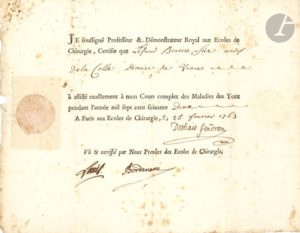 JE soussigné Professeur & Démonstrateur Royal aux Ecoles de
Chirurgie, Certifie que
de la Colle Diocese de Vence
à assisté exactement à mon Cours complet des Maladies des Yeux
pendant l'année mil sept cent soixante Deux
A Paris aux Ecoles de Chirurgie, ce 26 fevrier 1763
Deshais Gendron
Vû & certifié par Nous Prevôts des Ecoles de Chirurgie.
Louis Bordenave